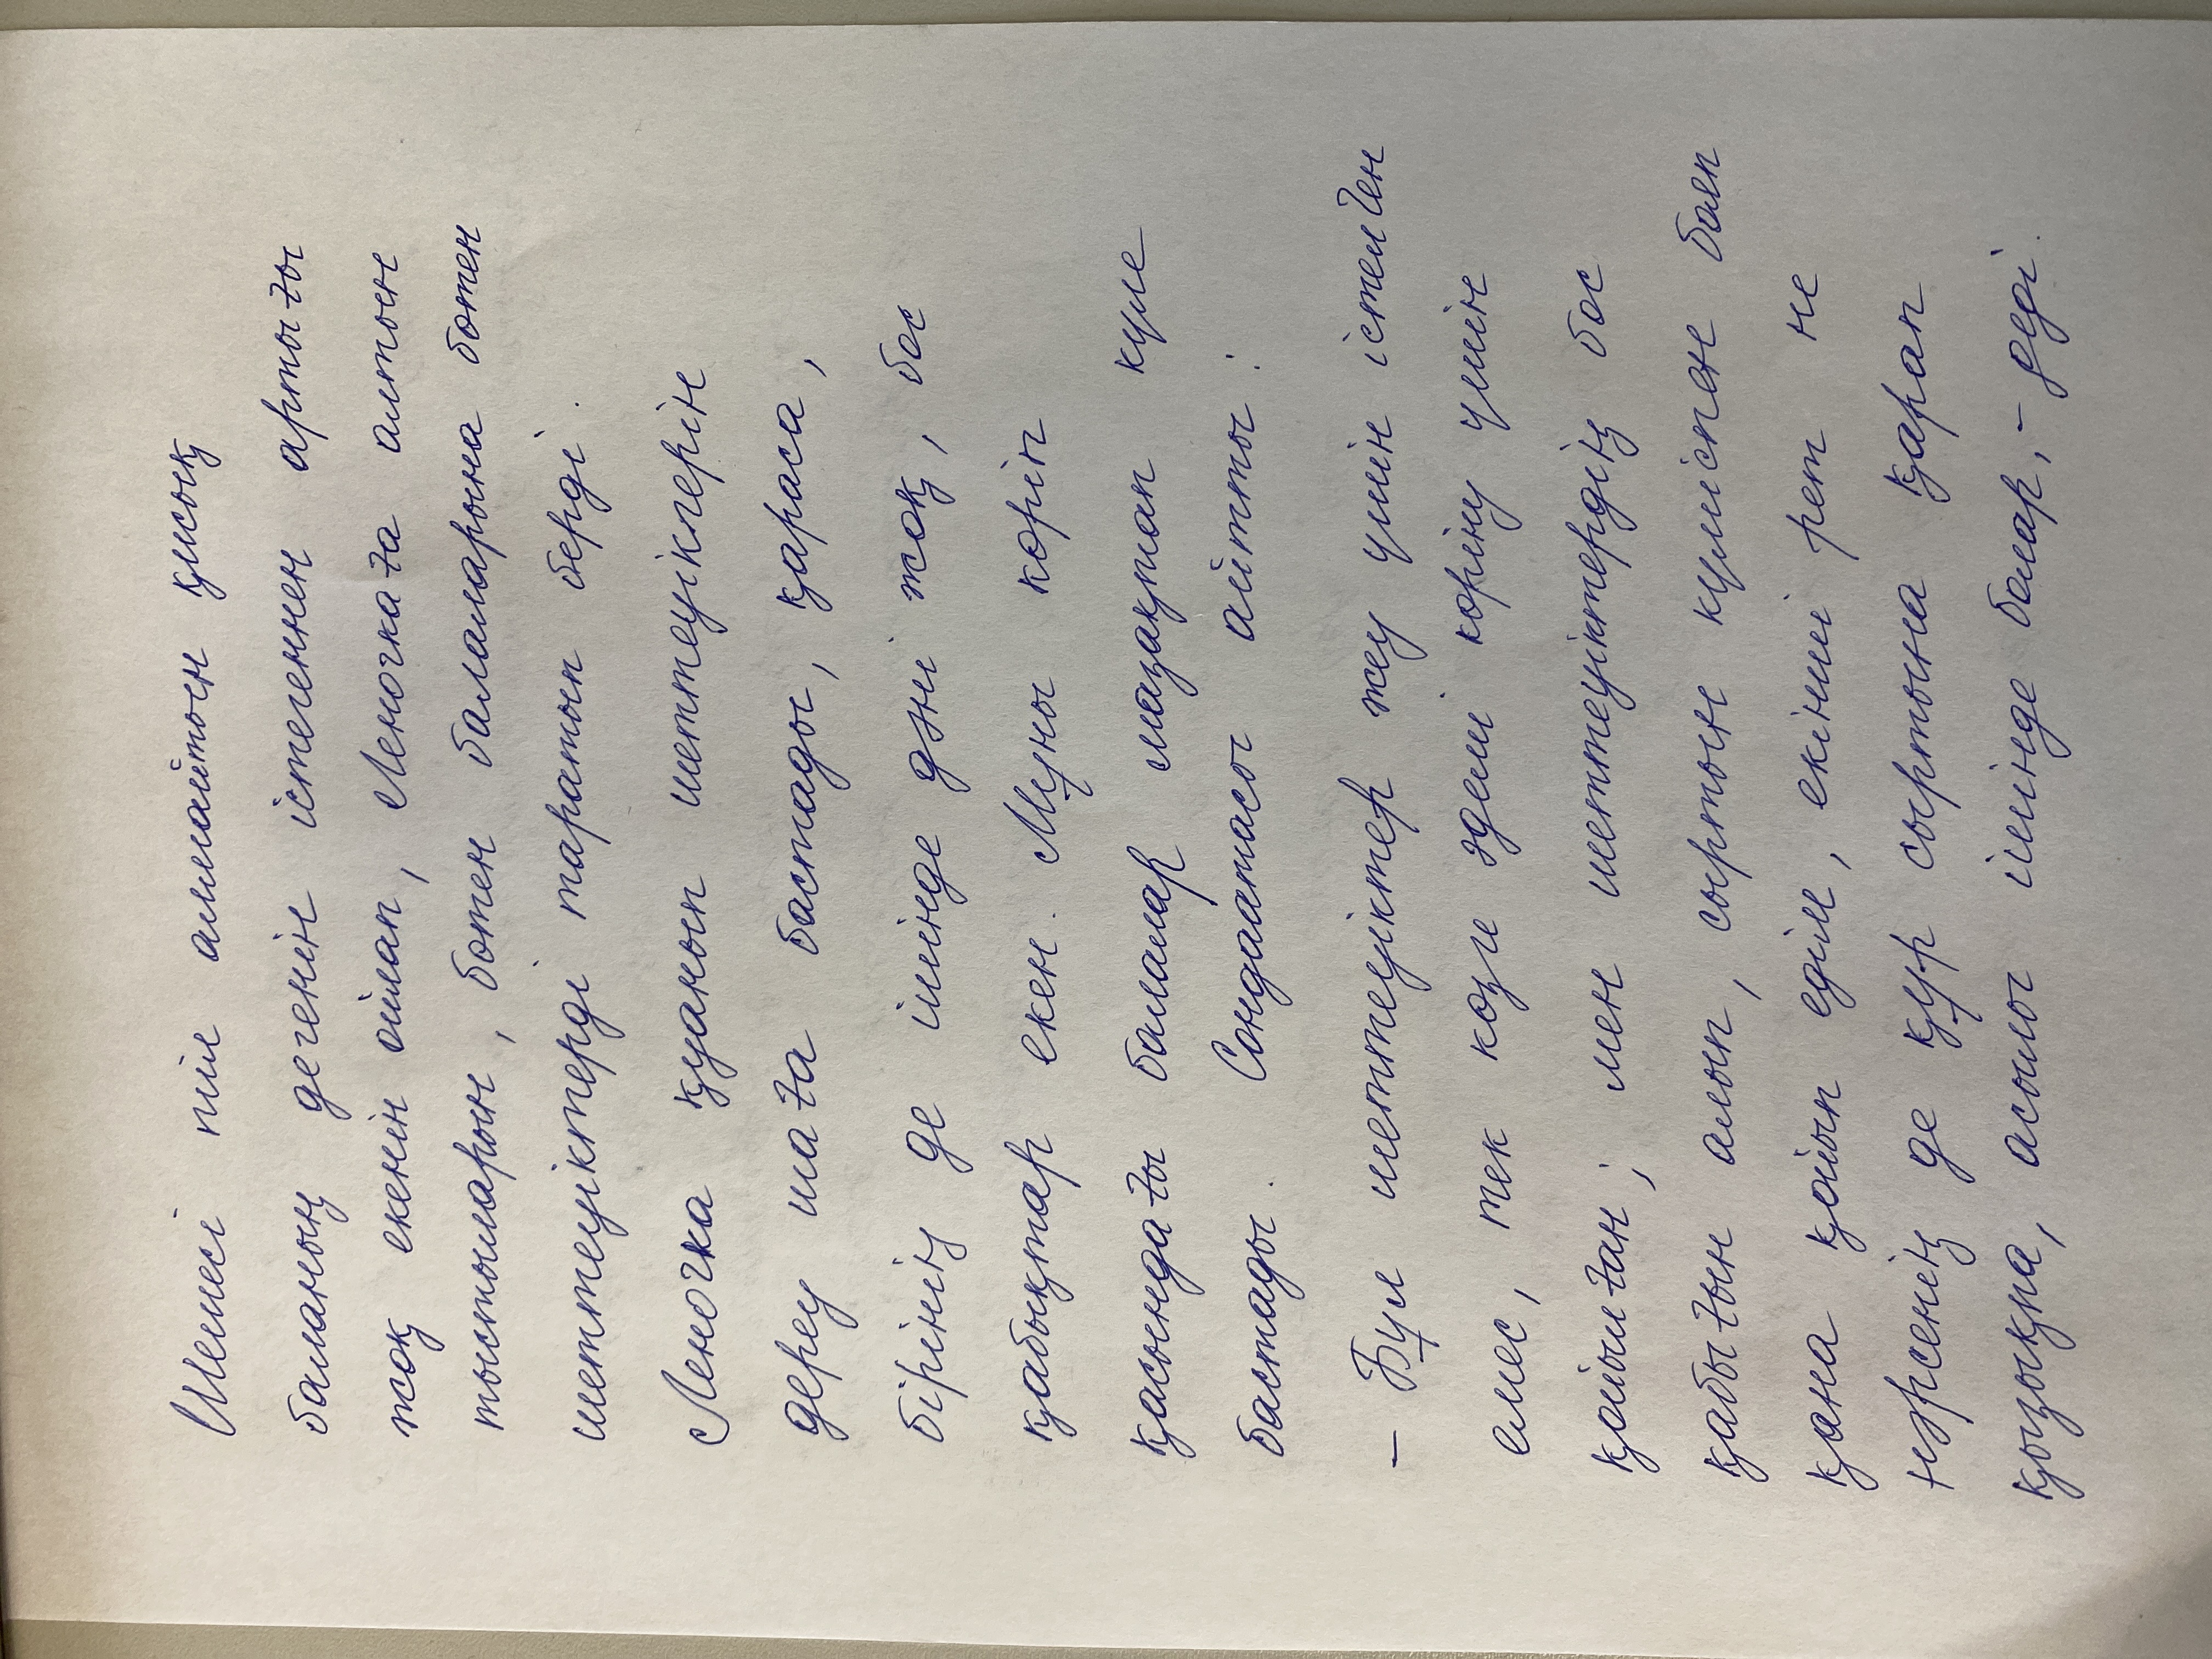 Шешесі тіл алмайтын қисық
баланың дегенін істегеннен артығы
жоқ екенін ойлап, Леночкаға алтын
тыстыларын, бөтен балаларына бөтен
шеттеуіктерді таратып берді.
Леночка қуанып шеттеуіктерін
дереу шаға бастады, қараса,
бірінің де ішінде дәні жоқ, бос
қабықтар екен. Мұны көріп
қасындағы балалар мазақтап күле
бастады. Сондаатасы айтты:
– Бұл шеттеуіктер жеу үшін істелген
емес, тек көзге әдемі көріну үшін
қойылған; мен шеттеуіктердің бос
қабығын алып, сыртын күміспен бояп
қана қойып едім, екінші рет не
нәрсенің де құр сыртына қарап
қызықпа, асылы ішінде болар, – деді.